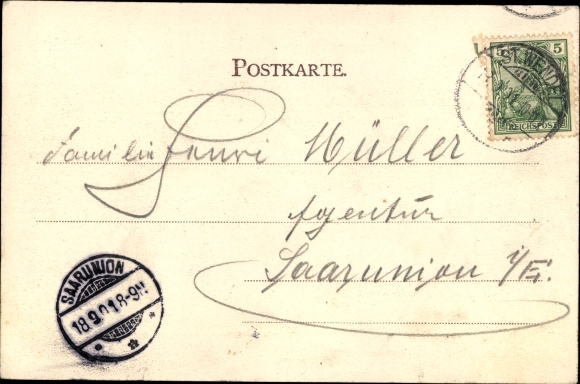 POSTKARTE.
5 5
ST. WENDEL
REICHSPOST
Familie Henri Müller
Agentur
Saarunion i/E.
SAARUNION
18.9.01.8-9N.